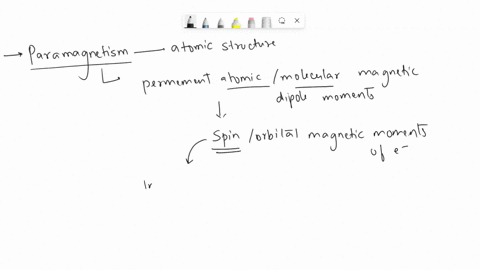 → Paramagnetism — atomic structure
permement atomic / molecular magnetic
dipole moments
Spin / orbital magnetic moments
of e⁻
In